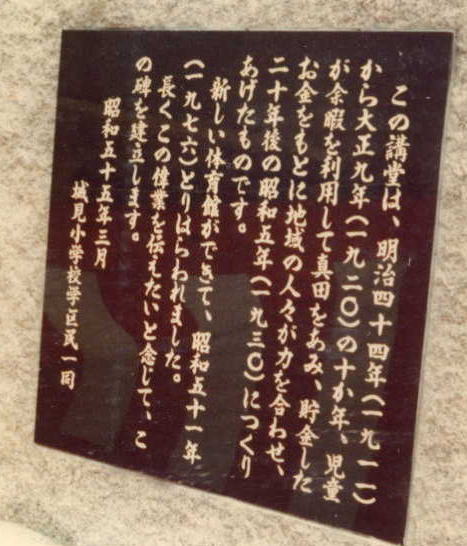 この講堂は、明治四十四年(一九一一)
から大正九年(一九二〇)の十か年、児童
が余暇を利用して真田をあみ、貯金した
お金をもとに地域の人々が力を合わせ、
二十年後の昭和五年(一九三〇)につくり
あげたものです。
新しい体育館ができて、昭和五十一年
(一九七六)とりはらわれました。
長くこの偉業を伝えたいと念じて、こ
の碑を建立します。
昭和五十五年三月
城見小学校学区民一同